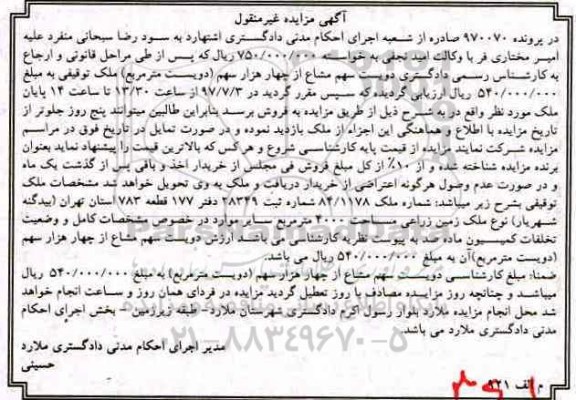 آگهی مزایده غیرمنقول
در پرونده ۹۷۰۰۷۰ صادره از شعبه اجرای احکام مدنی دادگستری اشتهارد به سود رضا سبحانی منفرد علیه
امیر مختاری فر با وکالت امید نجفی به خواسته ۷۵۰/۰۰۰/۰۰۰ ریال که پس از طی مراحل قانونی و ارجاع
به کارشناس رسمی دادگستری دویست سهم مشاع از چهار هزار سهم (دویست مترمربع) ملک توقیفی به مبلغ
۵۴۰/۰۰۰/۰۰۰ ریال ارزیابی گردیده که سپس مقرر گردید در ۹۷/۷/۳ از ساعت ۱۳/۳۰ تا ساعت ۱۴ پایان
ملک مورد نظر واقع در به شرح ذیل از طریق مزایده به فروش برسد بنابراین طالبین میتوانند پنج روز جلوتر از
تاریخ مزایده با اطلاع و هماهنگی این اجراء از ملک بازدید نموده و در صورت تمایل در تاریخ فوق در مراسم
مزایده شرکت نمایند مزایده از قیمت پایه کارشناسی شروع و هرکس که بالاترین قیمت را پیشنهاد نماید بعنوان
برنده مزایده شناخته شده و از ۱۰٪ از کل مبلغ فروش فی مجلس از خریدار اخذ و باقی پس از گذشت یک ماه
و در صورت عدم وصول هرگونه اعتراضی از خریدار دریافت و ملک به وی تحویل خواهد شد مشخصات ملک
توقیفی بشرح زیر میباشد: شماره ملک ۸۴/۱۱۷۸ شماره ثبت ۲۸۳۴۹ دفتر ۱۷۷ قطعه ۷۸۳ استان تهران (بیدگنه
شهریار) نوع ملک زمین زراعی مساحت ۴۰۰۰ مترمربع سایر موارد در خصوص مشخصات کامل و وضعیت
تخلفات کمیسیون ماده صد به پیوست نظریه کارشناسی می باشد ارزش دویست سهم مشاع از چهار هزار سهم
(دویست مترمربع) آن به مبلغ ۵۴۰/۰۰۰/۰۰۰ ریال می باشد.
ضمنا: مبلغ کارشناسی دویست سهم مشاع از چهار هزار سهم (دویست مترمربع) به مبلغ ۵۴۰/۰۰۰/۰۰۰ ریال
میباشد و چنانچه روز مزایده مصادف با روز تعطیل گردید مزایده در فردای همان روز و ساعت انجام خواهد
شد محل انجام مزایده ملارد بلوار رسول اکرم دادگستری شهرستان ملارد - طبقه زیرزمین - بخش اجرای احکام
مدنی دادگستری ملارد می باشد.
مدیر اجرای احکام مدنی دادگستری ملارد
حسینی
م الف ۹۲۱
ParsNamadData
۰۲۱-۸۸۳۴۹۶۷۰-۵